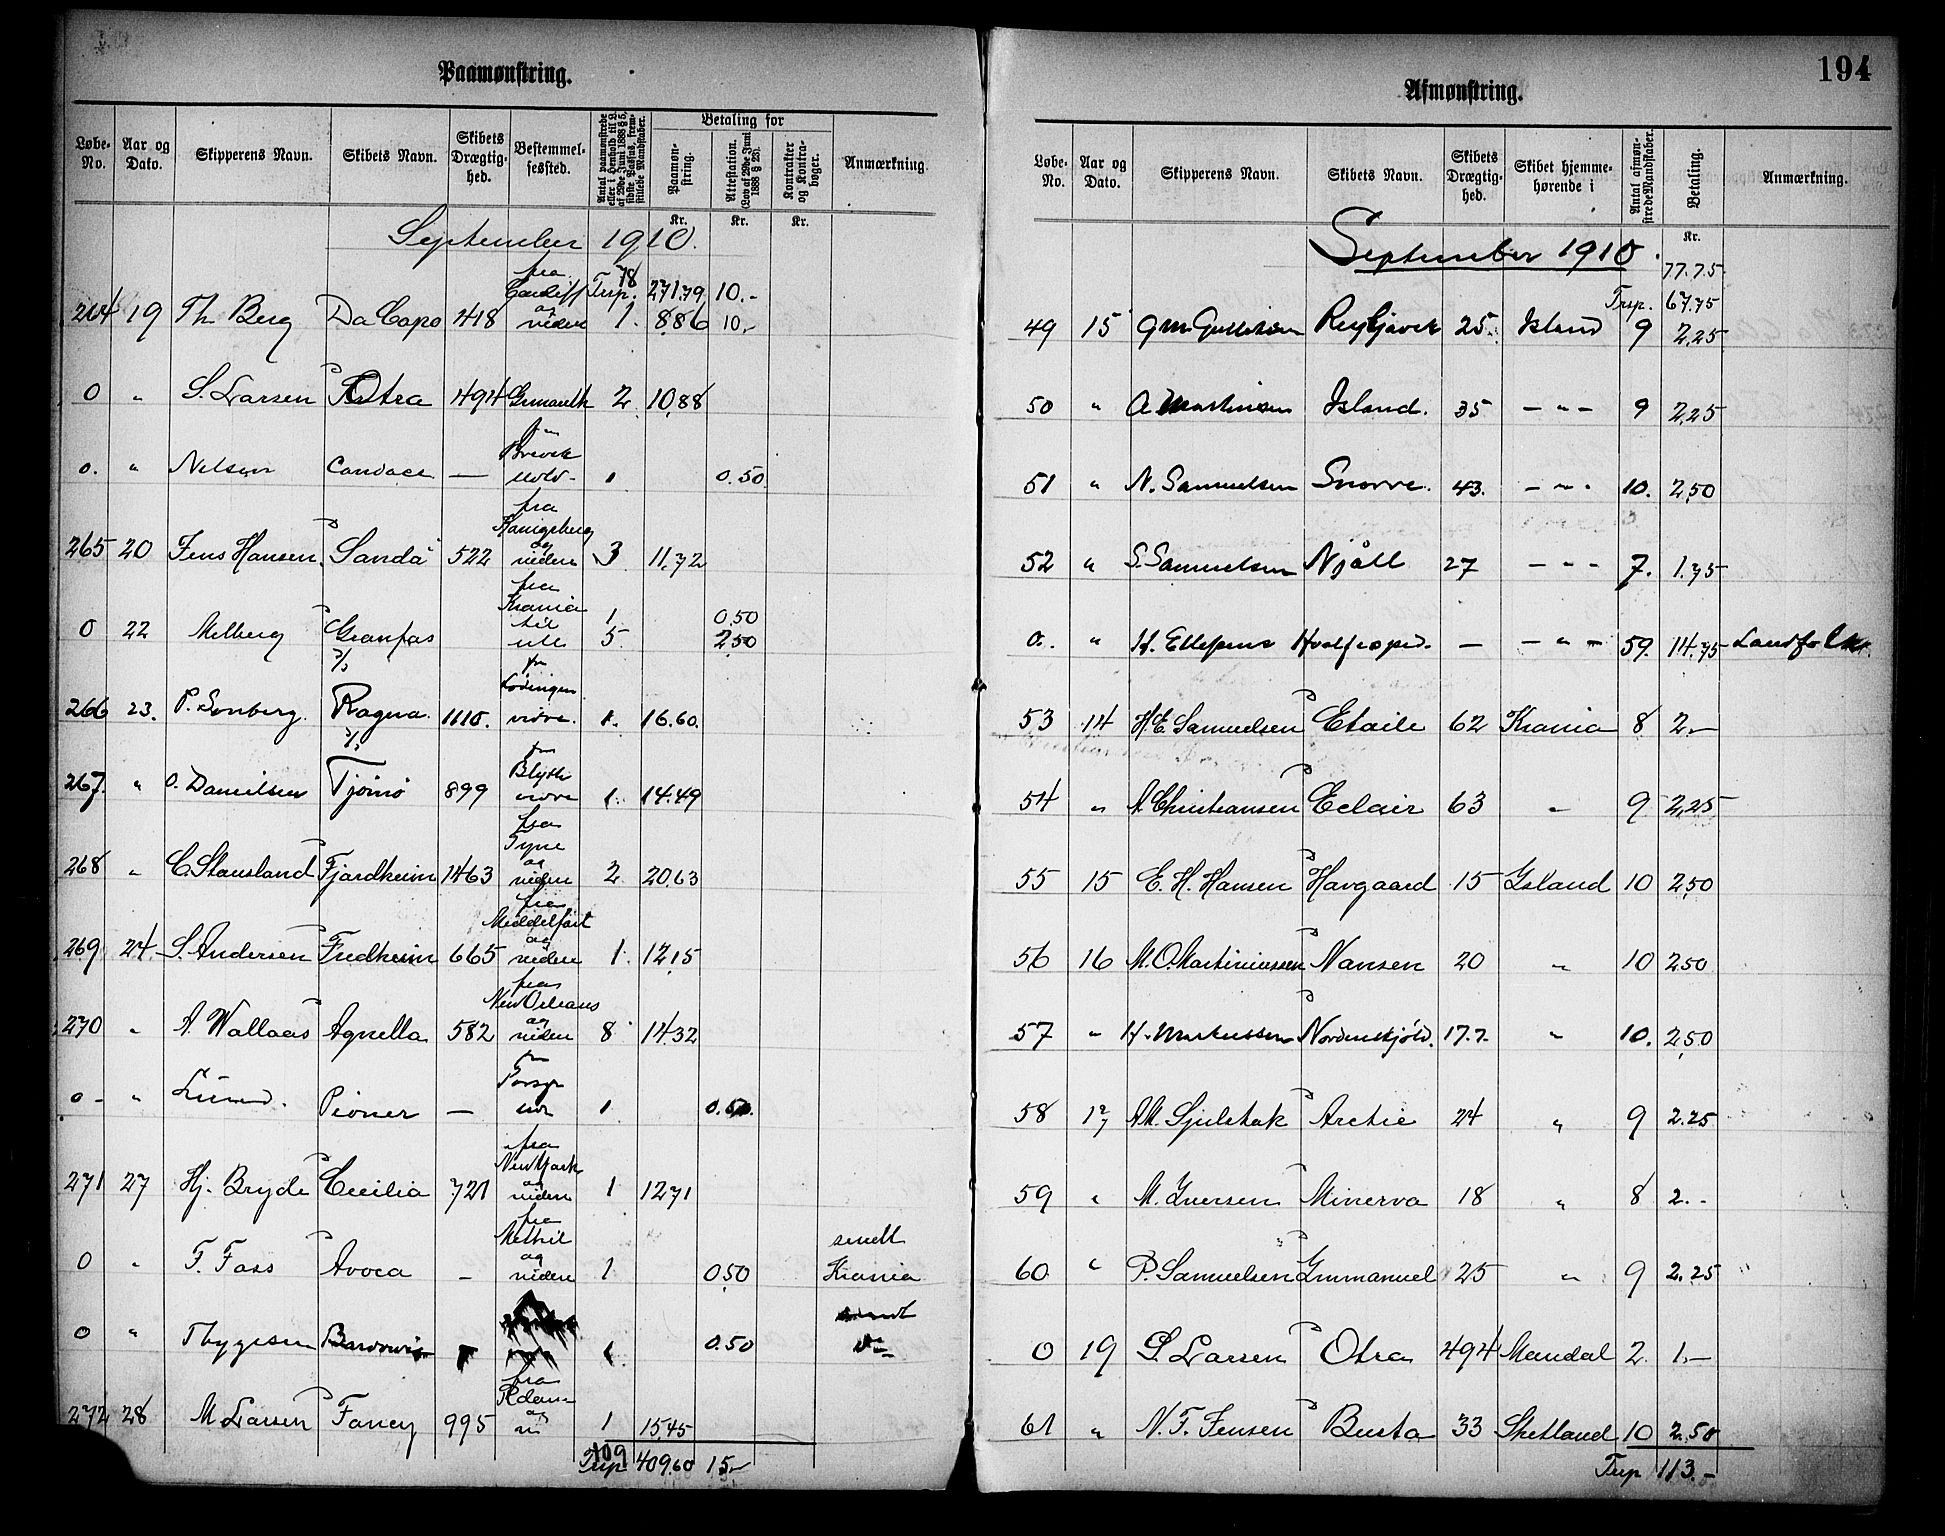 Paamønstring.
Løbe-No. Aar og Dato. Skipperens Navn. Skibets Navn. Skibets Drægtig-hed. Bestemmel-sessted. Antal paamønstrede eller i Henhold til L. af 29de Juni 1888 § 5, sidste Passus, frem-stillede Mandskaber. Betaling for Paamøn-string. Attestation. (Lov af 29de Juni 1888 § 25). Kontrakter og Kontra-bøger. Anmærkning.
Kr. Kr. Kr.
September 1910.
Trsp. 78 271.79 10.-
264 19 Th. Berg Da Capo 418 fra Cardiff og videre 1. 8.86 10,-
0 " S. Larsen Otra 494 2 10.88
0. " Nelsen Candace — Brevik 1 0.50
265 20 Jens Hansen Sandå 522 fra Kønigsberg og videre 3 11.72
0 22 Melberg Granfos fra Krania til 1 0.50
5 2.50
266 23. P. Svnberg Ragna 1110. fra Lødingen 1. 16.60.
267. " O. Danielsen Tjømø 899 fra Blyth 1. 14.49
268 " C. Stausland Fjordheim 1463 fra Tyne og videre 2 20.63
269 24 S. Andersen Fredheim 665 fra Middelfart og videre 1. 12.15
270 " A. Wallaas Agnella 582 fra New Orleans og videre 8 14.32
0 - " Lund. Pioner — fra 1 0.50.
271 27 Hj. Bryde Cecilia 721 fra New York og videre 1 12.71
0 " F. Fass Avoca - fra Methil og videre 1 0.50 sendt Krania
0 " Thygesen 1 0.50 sendt
272 28 M Larsen Fancy 995 fra og 1 15.45
109
Trsp 409.60 15,-
194
Afmønstring.
Løbe-No. Aar og Dato. Skipperens Navn. Skibets Navn. Skibets Drægtig-hed. Skibet hjemme-hørende i Antal afmøn-strede Mandskaber. Betaling. Anmærkning.
Kr.
September 1910.
77.75
Trsp. 67.75
49 15 Reykjavik 25 Island 9 2.25
50 " A Martinsen Island. 35 — " — 9 2.25
51 " N. Samuelsen Snorre. 43. — " — 10. 2.50
52 " S. Samuelsen Njåll 27 — " — 7. 1.75
0. " H. Ellefsens — — " — 59. 14.75 Landfolk.
53 14 H.E. Samuelsen Etoile 62 Krania 8 2.—
54 " A. Christiansen Eclair 63 " 9 2.25
55 15 E. H. Hansen Havgaard 15 Island 10 2.50
56 16 M. O. Martiniussen Nansen 20 " 10 2.50
57 " H. Markussen Nordenskjöld. 17.7. " 10. 2.50
58 17 Arctic 24 " 9 2.25
59 " M. Iversen Minerva 18 " 8 2.-
60 " P. Samuelsen Immanuel 25 " 9 2.25
0 19 S. Larsen Otra 494 Mandal 2 1.—
61 " N. F. Jensen Busta 33 Shetland 10 2.50
Trsp 113.-